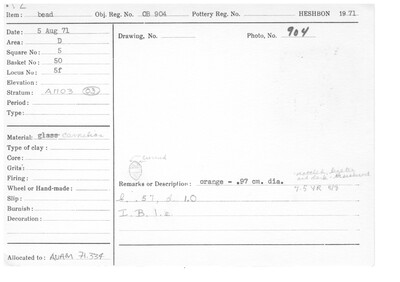 Item: bead Obj. Reg. No. OB. 904 Pottery Reg. No. HESHBON 19 71.
Date: 5 Aug 71
Area: D
Square No: 5
Basket No: 50
Locus No: 5f
Elevation:
Stratum:
Period:
Type:
Drawing, No. Photo, No. 904
Material: glass carnelian
Type of clay:
Core:
Grits:
Firing:
Wheel or Hand-made:
Slip:
Burnish:
Decoration:
Remarks or Description: orange - .97 cm. dia.
7.5 YR
l. .57, d 1.0
I. B. 1. a
Allocated to: ADAM 71.334